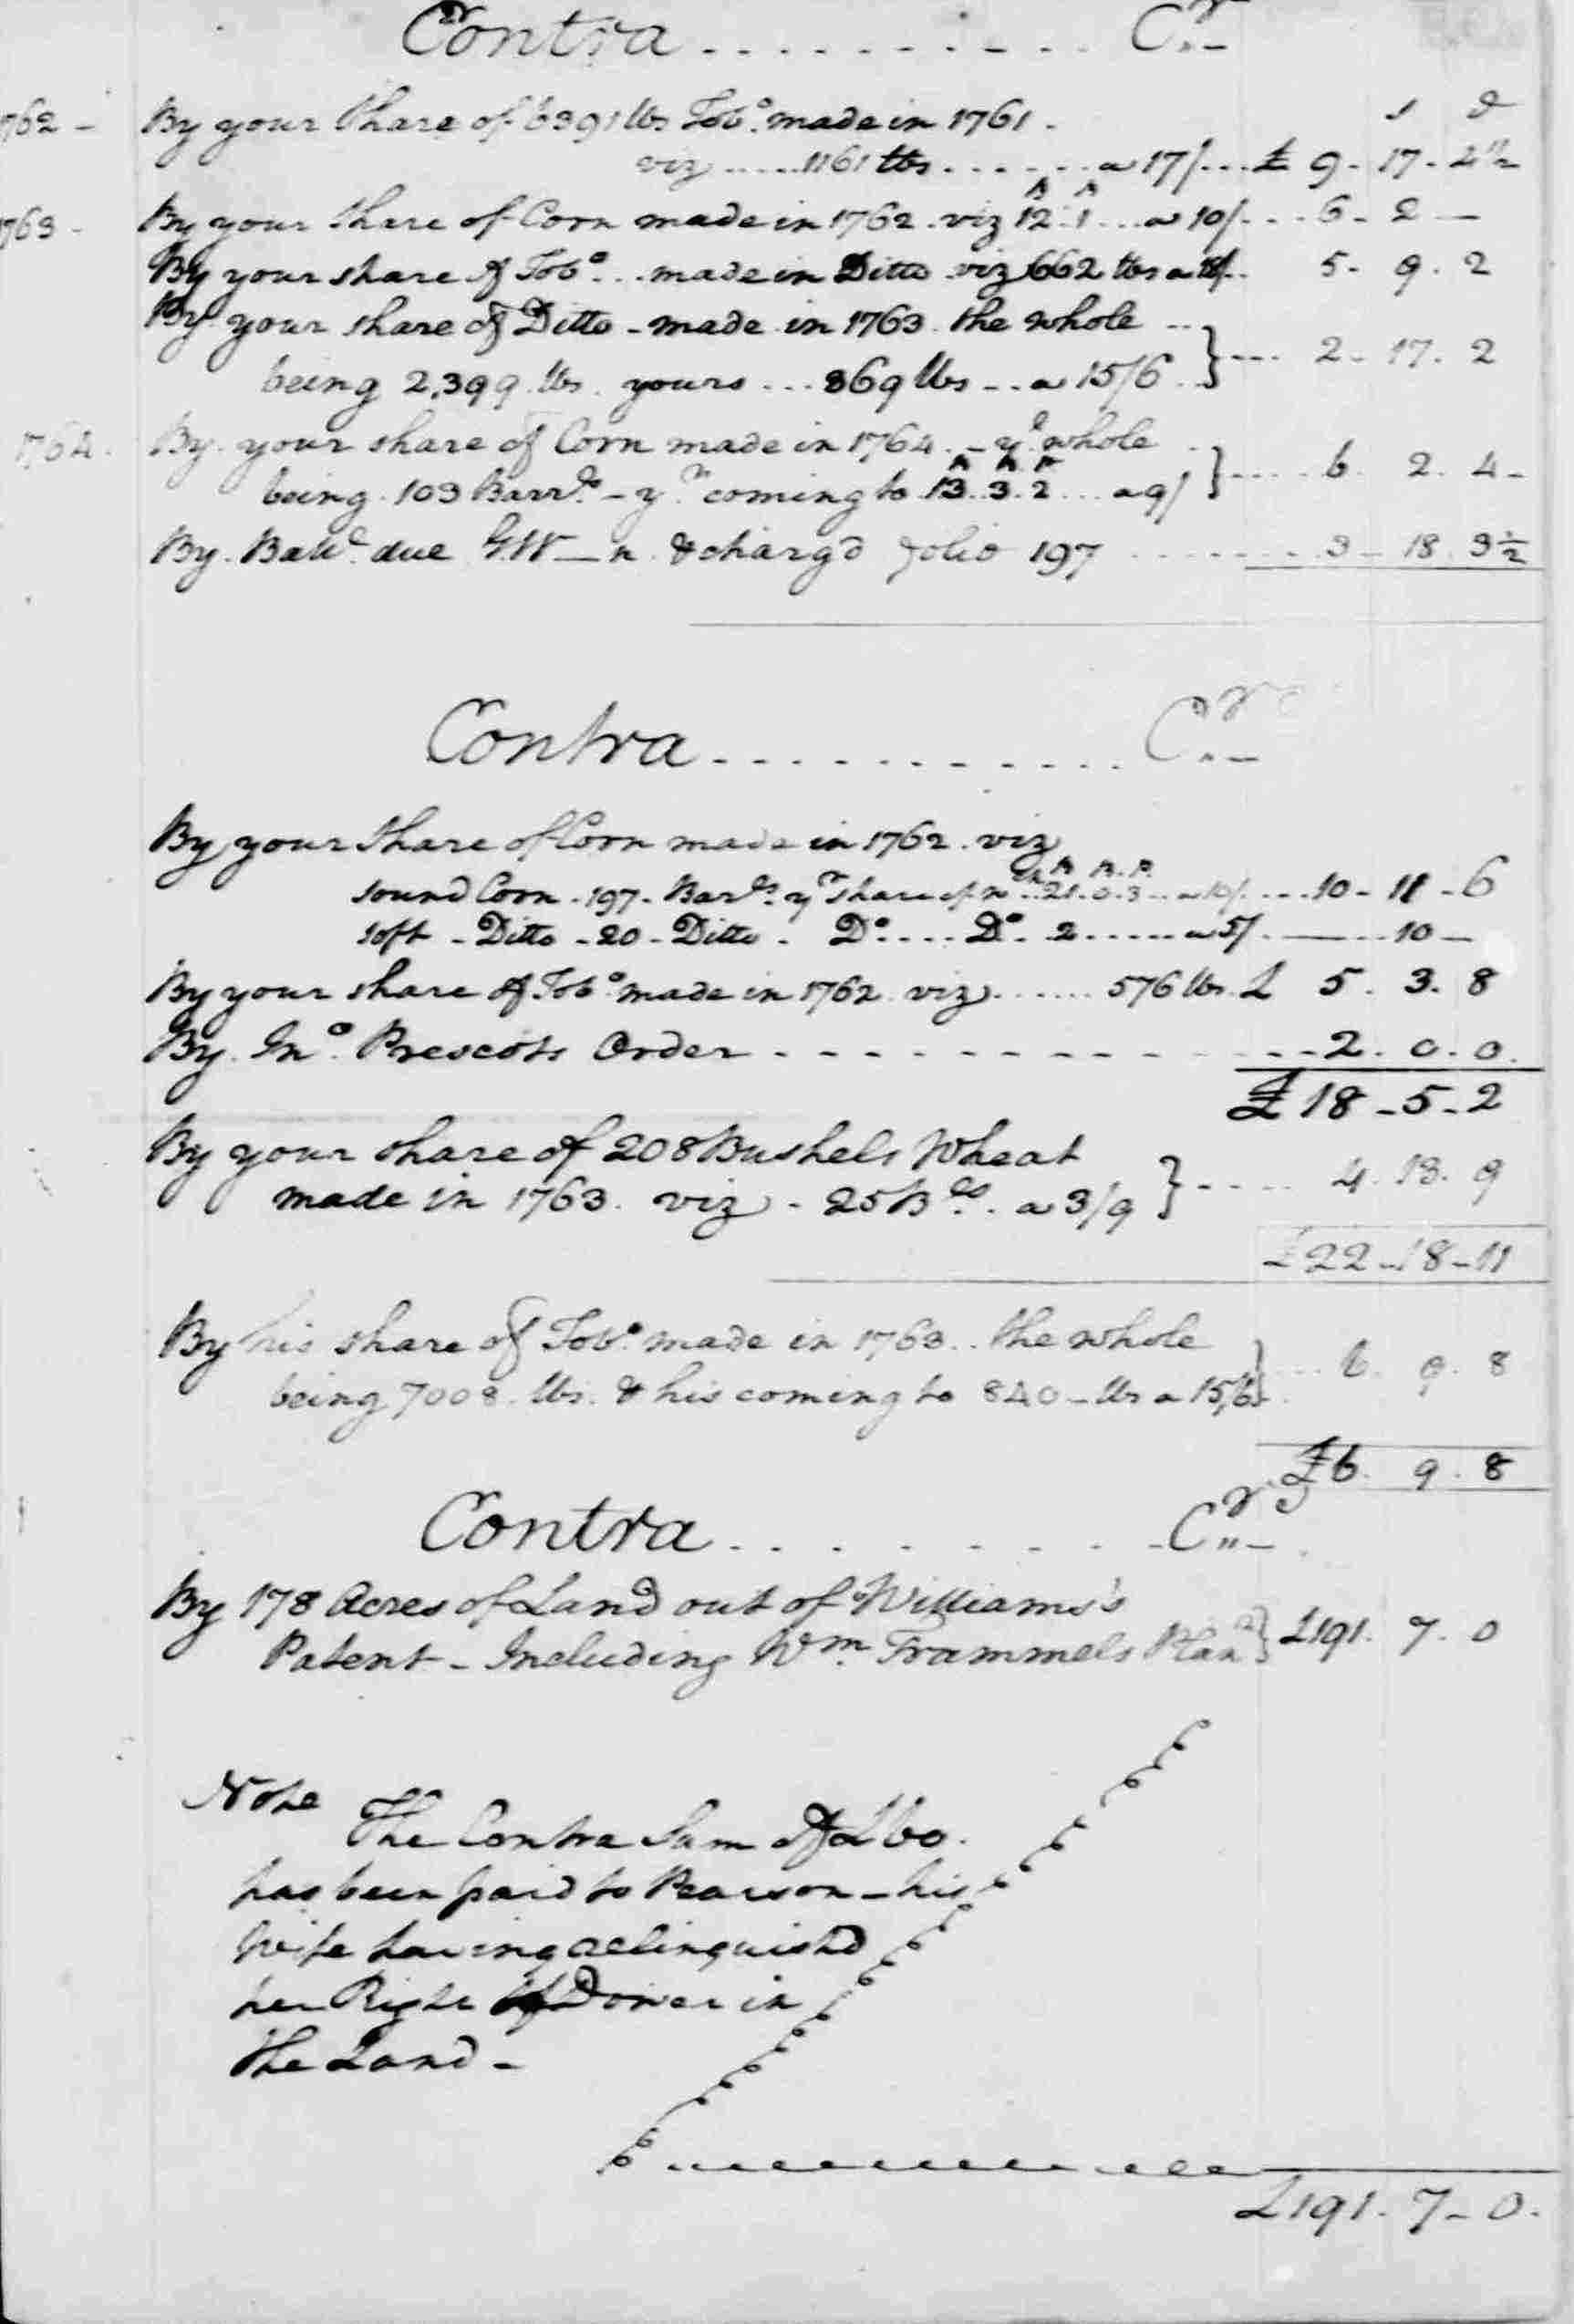 Contra . . . . . . . . . . Cr.–
s d
762 – By your Share of 6391 lbs Tobo. made in 1761 .
viz ..... 1161 lbs . . . . . . . a 17/ ... £ 9 - 17 - 4 1/2
1763 - By your share of Corn made in 1762 . viz 12 . 1 ... a 10/ . . . 6 - 2 —
By your share of Tobo. .. made in Ditto viz 662 lbs a 5 - 9 . 2
By your share of Ditto – made in 1763 . the whole ..
being 2,399 lbs . yours ... 369 lbs – .. a 15/6 .. } --- 2 - 17 . 2
1764 . By your share of Corn made in 1764 . – ye. whole
being . 103 Barrls – yr. coming to 13 . 3 . 2 ... a 9/ } .... 6 . 2 . 4 –
By . Ballce. due G.W—n . & charg'd folio 197 . . . . . . . . 3 – 18 . 3 1/2
Contra . . . . . . . . . . . Cr.–
By your Share of Corn made in 1762 . viz
sound Corn . 197 . Barls. yr share of wch .. 21 . 0 . 3 .. a 10/ . ... 10 – 11 – 6
soft – Ditto – 20 – Ditto . Do. .... Do. 2 ...... a 5/ . —— ... 10 —
By your share of Tobo. made in 1762 viz ....... 576 lbs . £ 5 . 3 . 8
By . Jno. Prescots Order . . . . . . . . . . . . . . 2 . 0 . 0 .
£ 18 – 5 – 2
By your share of 208 Bushels Wheat
made in 1763 . viz – 25 Bls. . a 3/9 } . . . . 4 . 13 . 9
£ 22 – 18 – 11
By his share of Tobo. made in 1763 .. the whole
being 7008 . lbs . & his coming to 840 – lbs a 15/6 } ... 6 . 9 . 8
£ 6 . 9 . 8
Contra . . . . . . . . Cr.–
By 178 Acres of Land out of Williams's
Patent – Including Wm. Trammels Plann } £191 . 7 . 0
Note
The Contra Sum of £60 .
has been paid to Pearson – his
Wife having relinquishd
her Right of Dower in
the Land –
£191 . 7 – 0 .